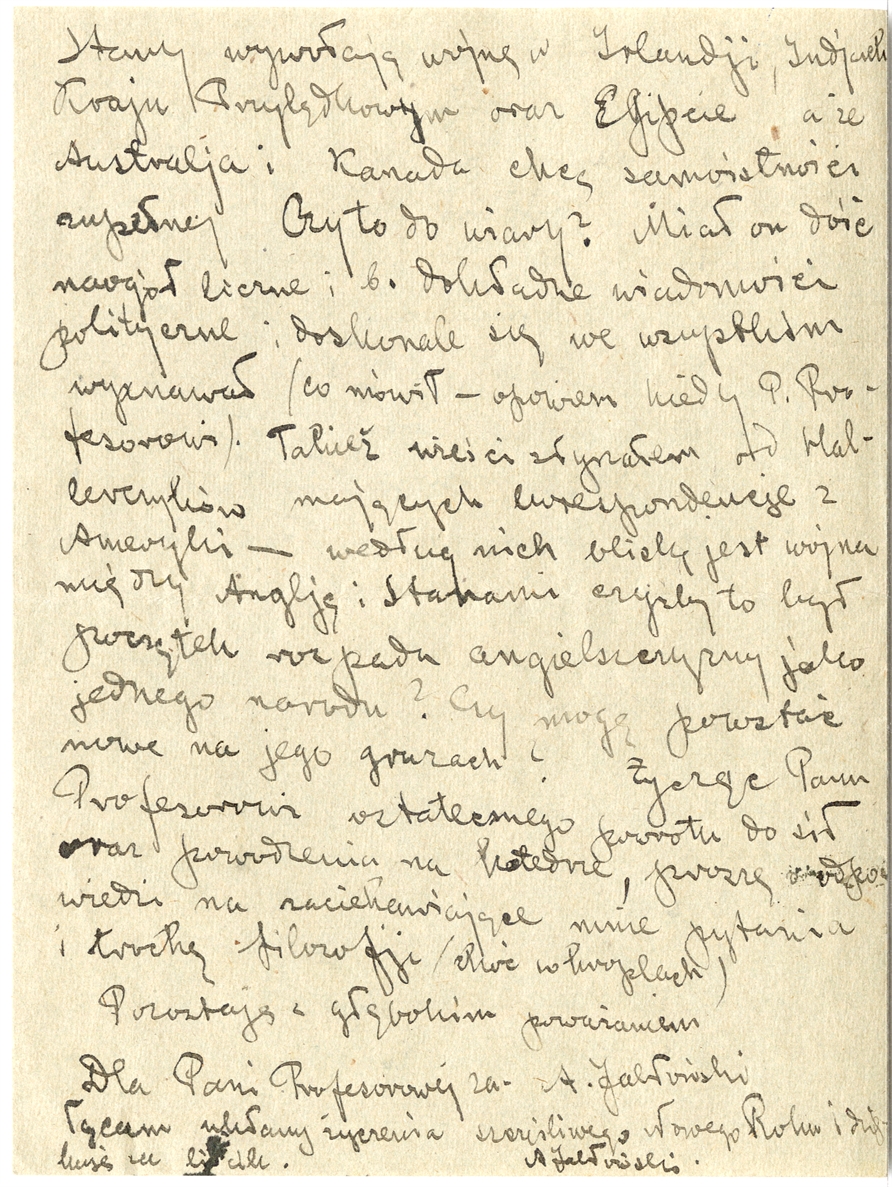 Stany wywołają wojnę w Irlandji, Indjach
Kraju Przylądkowym oraz Egipcie a że
Australja i Kanada chcą samoistności
zupełnej Czy to do wiary? Miał on dość
naogół liczne i b. dokładne wiadomości
polityczne i doskonale się we wszystkiem
wyznawał (co mówił – opowiem kiedy P. Pro-
fesorowi). Takież wieści słyszałem od Hal-
lerczyków mających korespondencje z
Ameryki — według nich bliską jest wojna
między Anglją i Stanami czyżby to był
początek rozpadu angielszczyzny jako
jednego narodu? Czy mogą powstać
nowe na jego gruzach? Życzę Panu
Profesorowi ostatecznego powrotu do sił
oraz powodzenia na katedrze, proszę o odpo
wiedzi na zaciekawiające mnie pytania
i trochę filozofji (choć w kroplach)
Pozostaję z głębokim poważaniem
Dla Pani Profesorowej za- A. Jałłowiski
łączam układamy życzenia szczęśliwego Nowego Roku i dzię-
kuję za liścik. A Jałłowiski.